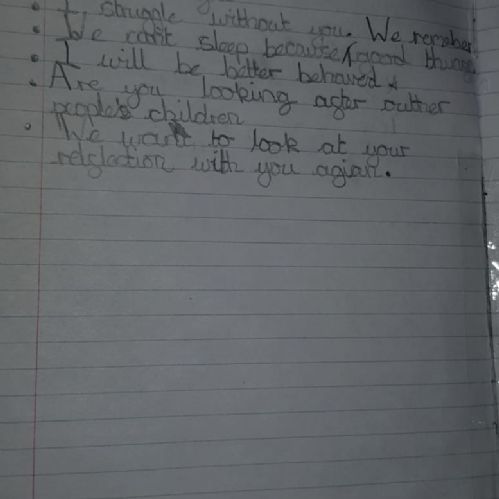 • I struggle without you. We remember
• We can't sleep because good things
• I will be better behaved
• Are you looking after outher
people's children
• We want to look at your
relglection with you agian.